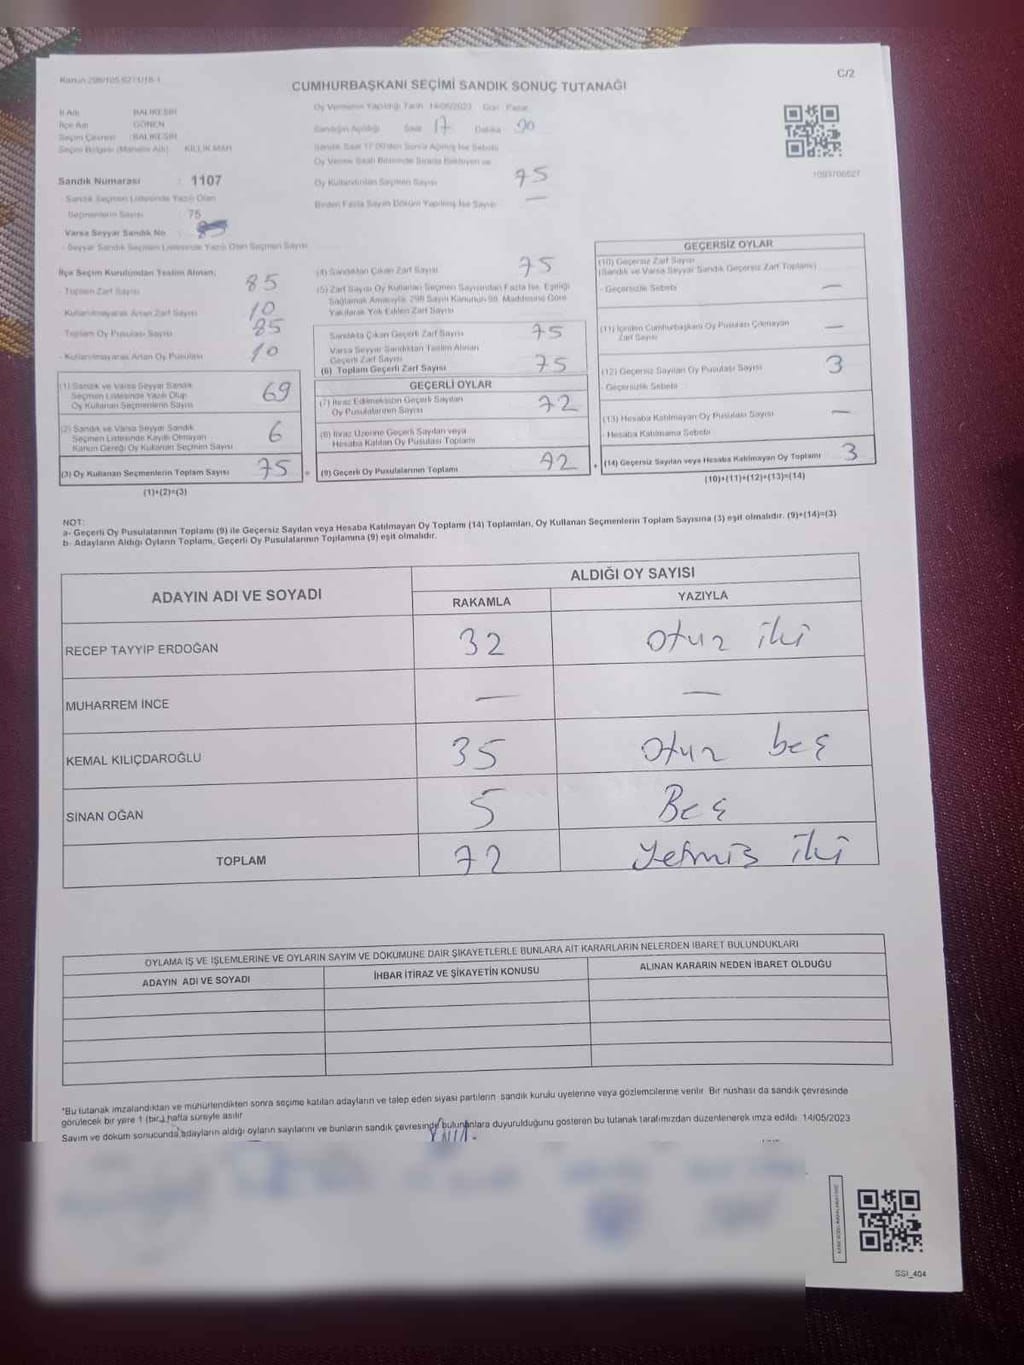 Kanun 298/105,6271/18-1
C/2
CUMHURBAŞKANI SEÇİMİ SANDIK SONUÇ TUTANAĞI
İl Adı BALIKESİR
İlçe Adı GÖNEN
Seçim Çevresi BALIKESİR
Seçim Bölgesi (Mahalle Adı) KILLIK MAH
Sandık Numarası : 1107
- Sandık Seçmen Listesinde Yazılı Olan
Seçmenlerin Sayısı 75
Varsa Seyyar Sandık No
- Seyyar Sandık Seçmen Listesinde Yazılı Olan Seçmen Sayısı
Oy Vermenin Yapıldığı Tarih 14/05/2023 Gün Pazar
Sandığın Açıldığı Saat 17 Dakika
Sandık Saat 17.00'den Sonra Açılmış İse Sebebi
Oy Verme Saati Bitiminde Sırada Bekleyen ve
Oy Kullandırılan Seçmen Sayısı 75
Birden Fazla Sayım Döküm Yapılmış İse Sayısı —
İlçe Seçim Kurulundan Teslim Alınan;
- Toplam Zarf Sayısı 85
Kullanılmayarak Artan Zarf Sayısı 10
Toplam Oy Pusulası Sayısı 85
- Kullanılmayarak Artan Oy Pusulası 10
(1) Sandık ve Varsa Seyyar Sandık
Seçmen Listesinde Yazılı Olup
Oy Kullanan Seçmenlerin Sayısı 69
(2) Sandık ve Varsa Seyyar Sandık
Seçmen Listesinde Kayıtlı Olmayan
Kanun Gereği Oy Kullanan Seçmen Sayısı 6
(3) Oy Kullanan Seçmenlerin Toplam Sayısı 75
(1)+(2)=(3)
(4) Sandıktan Çıkan Zarf Sayısı 75
(5) Zarf Sayısı Oy Kullanan Seçmen Sayısından Fazla İse, Eşitliği
Sağlamak Amacıyla, 298 Sayılı Kanunun 98. Maddesine Göre
Yakılarak Yok Edilen Zarf Sayısı
Sandıkta Çıkan Geçerli Zarf Sayısı 75
Varsa Seyyar Sandıktan Teslim Alınan
Geçerli Zarf Sayısı
(6) Toplam Geçerli Zarf Sayısı 75
GEÇERLİ OYLAR
(7) İtiraz Edilmeksizin Geçerli Sayılan
Oy Pusulalarının Sayısı 72
(8) İtiraz Üzerine Geçerli Sayılan veya
Hesaba Katılan Oy Pusulası Toplamı
(9) Geçerli Oy Pusulalarının Toplamı 72
GEÇERSİZ OYLAR
(10) Geçersiz Zarf Sayısı
(Sandık ve Varsa Seyyar Sandık Geçersiz Zarf Toplamı)
- Geçersizlik Sebebi —
(11) İçinden Cumhurbaşkanı Oy Pusulası Çıkmayan
Zarf Sayısı —
(12) Geçersiz Sayılan Oy Pusulası Sayısı 3
- Geçersizlik Sebebi
(13) Hesaba Katılmayan Oy Pusulası Sayısı —
Hesaba Katılmama Sebebi
(14) Geçersiz Sayılan veya Hesaba Katılmayan Oy Toplamı 3
(10)+(11)+(12)+(13)=(14)
NOT:
a- Geçerli Oy Pusulalarının Toplamı (9) ile Geçersiz Sayılan veya Hesaba Katılmayan Oy Toplamı (14) Toplamları, Oy Kullanan Seçmenlerin Toplam Sayısına (3) eşit olmalıdır. (9)+(14)=(3)
b- Adayların Aldığı Oyların Toplamı, Geçerli Oy Pusulalarının Toplamına (9) eşit olmalıdır.
ADAYIN ADI VE SOYADI
ALDIĞI OY SAYISI
RAKAMLA YAZIYLA
RECEP TAYYİP ERDOĞAN 32 Otuz iki
MUHARREM İNCE — —
KEMAL KILIÇDAROĞLU 35 Otuz beş
SİNAN OĞAN 5 Beş
TOPLAM 72 Yetmiş iki
OYLAMA İŞ VE İŞLEMLERİNE VE OYLARIN SAYIM VE DÖKÜMÜNE DAİR ŞİKAYETLERLE BUNLARA AİT KARARLARIN NELERDEN İBARET BULUNDUKLARI
ADAYIN ADI VE SOYADI İHBAR İTİRAZ VE ŞİKAYETİN KONUSU ALINAN KARARIN NEDEN İBARET OLDUĞU
*Bu tutanak imzalandıktan ve mühürlendikten sonra seçime katılan adayların ve talep eden siyasi partilerin sandık kurulu üyelerine veya gözlemcilerine verilir. Bir nüshası da sandık çevresinde
görülecek bir yere 1 (bir) hafta süreyle asılır
Sayım ve döküm sonucunda adayların aldığı oyların sayılarını ve bunların sandık çevresinde bulunanlara duyurulduğunu gösteren bu tutanak tarafımızdan düzenlenerek imza edildi. 14/05/2023
SSI_404